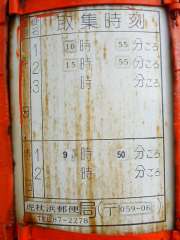 取集時刻
1 10時 55分ごろ
2 15時 55分ごろ
3 時 分ごろ
1 9時 50分ごろ
2 時 分ごろ
虎杖浜郵便局(〒059-06
TEL87-2278